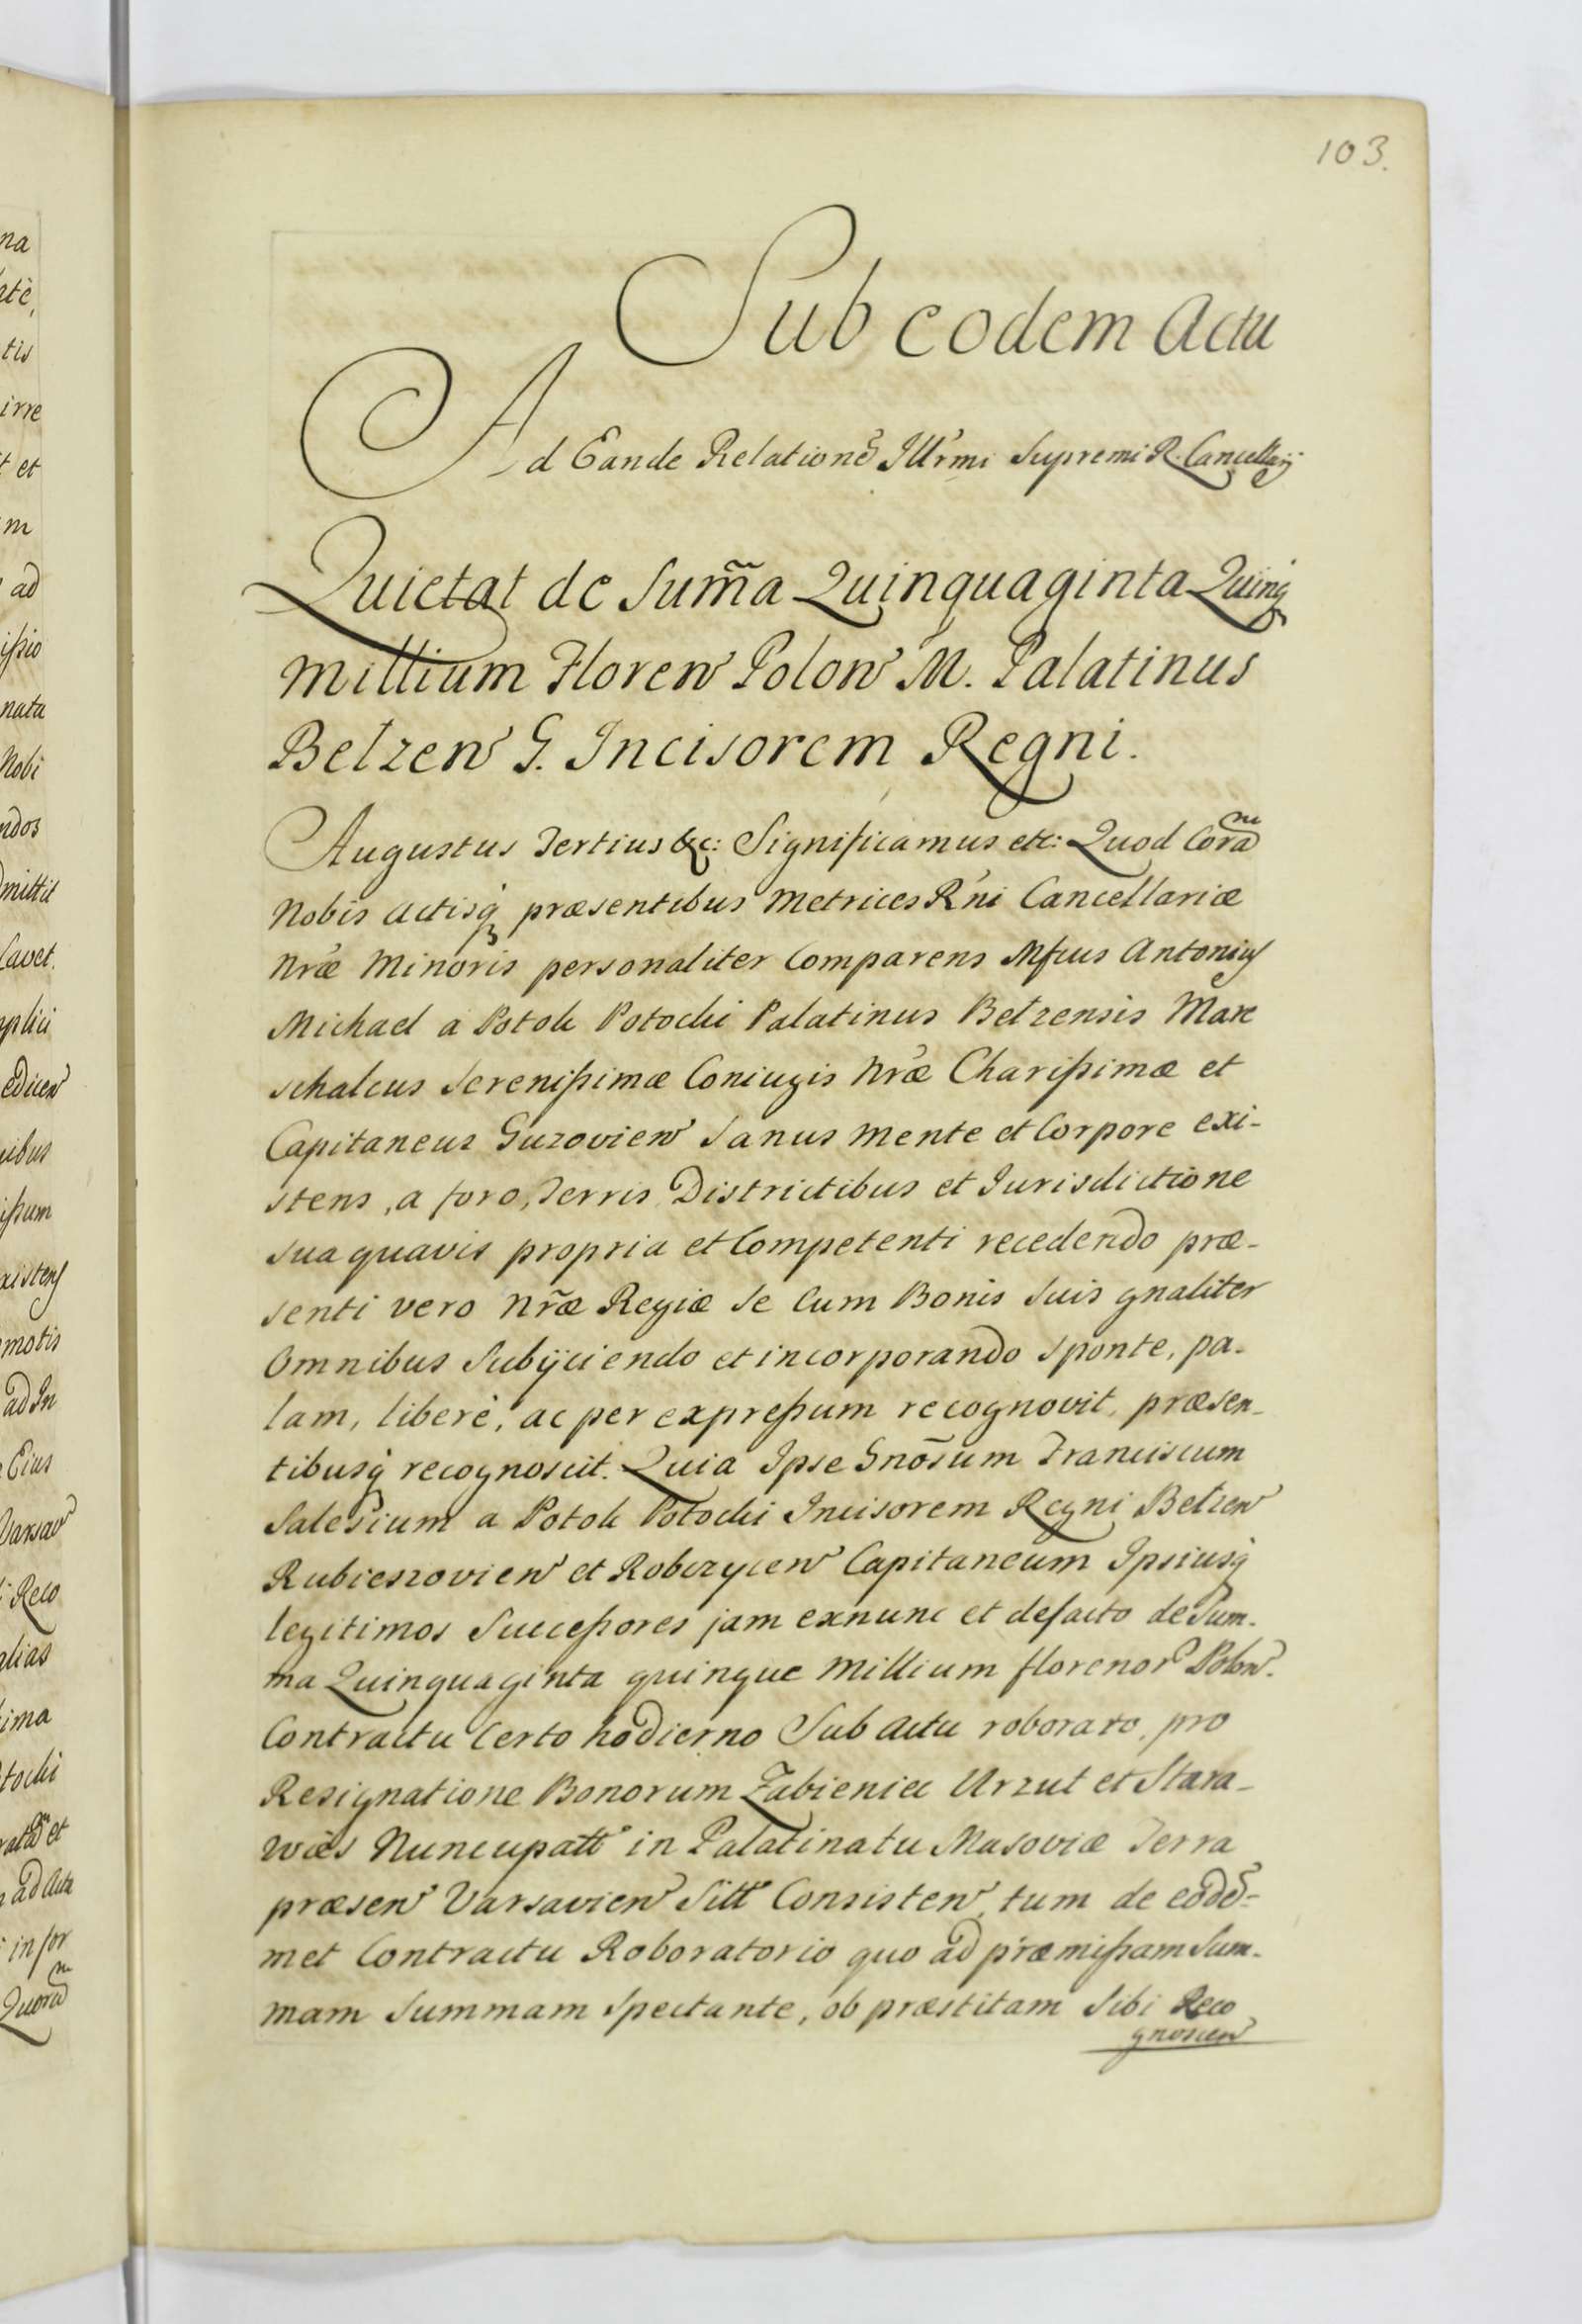 103.
Sub eodem Actu
Ad Eande Relatione Illrmi Supremi R. Cancellarij
Quietat de Sum̃a Quinquaginta Quinq
millium Floren Polon M. Palatinus
Belzen G. Incisorem Regni.
Augustus Tertius &c: Significamus etc: Quod Cora
Nobis actisq præsentibus Metrices R'ni Cancellariæ
Nræ Minoris personaliter Comparens Mfcus Antonius
Michael a Potok Potocki Palatinus Belzensis Mare
schalcus Serenissimæ Coniugis Nræ Charissimæ et
Capitaneus Guzovien Sanus mente et Corpore exi-
stens, a foro, Terris Districtibus et Jurisdictione
sua quavis propria et Competenti recedendo præ-
senti vero Nr̃æ Regiæ se Cum Bonis suis gnaliter
Omnibus Subijciendo et incorporando sponte, pa-
lam, liberè, ac per expressum recognovit, præsen-
tibusq recognoscit. Quia Ipse Gnõsum Franciscum
Salesium a Potok Potocki Incisorem Regni Belzen
Rubieszovien et Robczycen Capitaneum Ipsiusq
legitimos Successores jam exnunc et defacto de Sum-
ma Quinquaginta quinque Millium florenor Polon.
Contractu Certo hodierno Sub actu roborato, pro
Resignatione Bonorum Zabieniec Urzut et Stara-
wies Nuncupatt in Palatinatu Masoviæ Terra
præsen Varsavien Sitt Consisten, tum de eode-
met Contractu Roboratorio quo ad præmissam Sum-
mam Summam Spectante, ob præstitam Sibi Reco
gnoscen
na
tis
irre
et
m
ad
nata
Nobi
ndos
mittit
Cavet.
plici
edicen
ibus
issum
xistens
motis
ad In
Eius
Varsav
Reco
alias
ima
tocki
et
ad Acta
in for
Quora